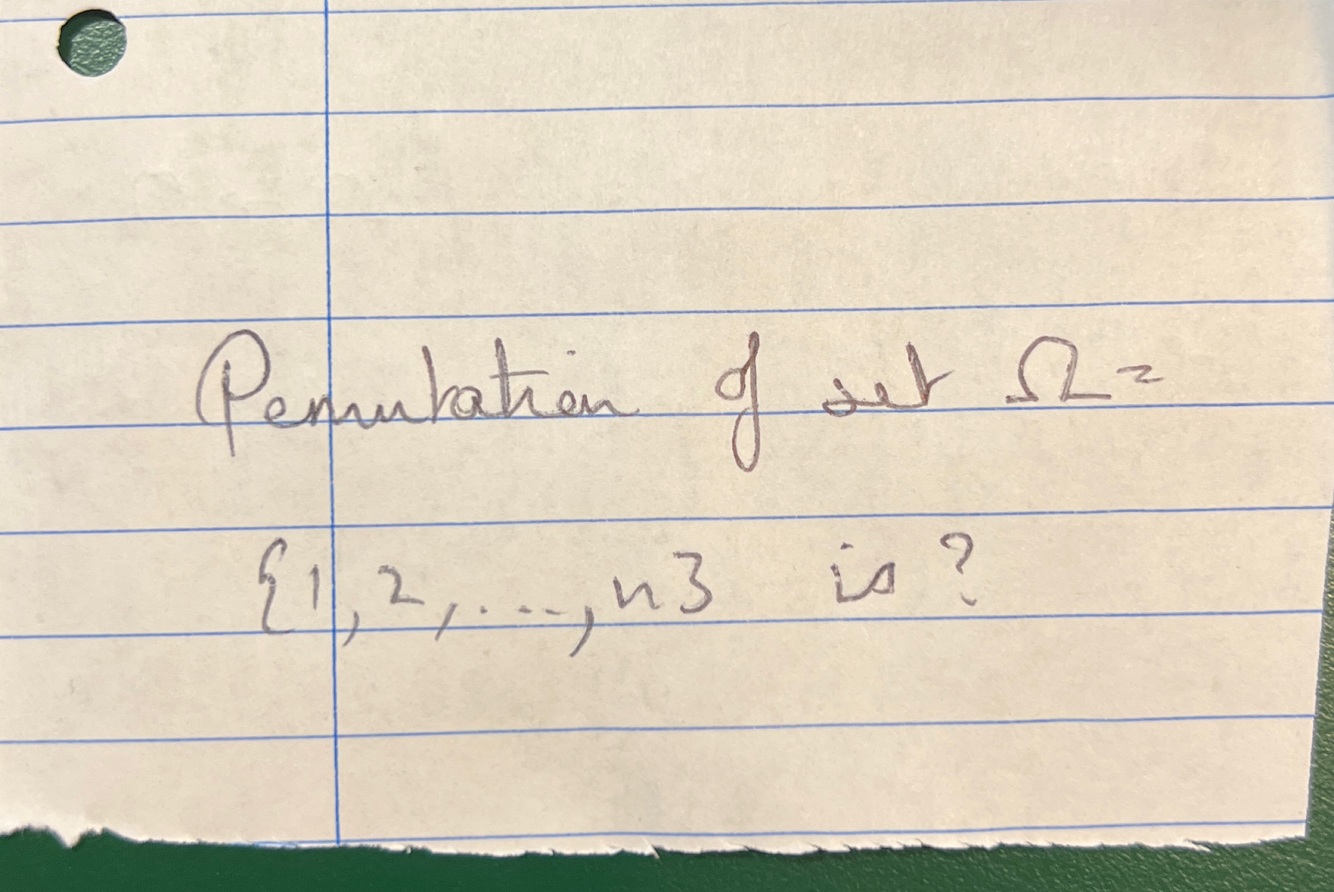 Permutation of set Ω =
{1, 2, ..., n} is ?